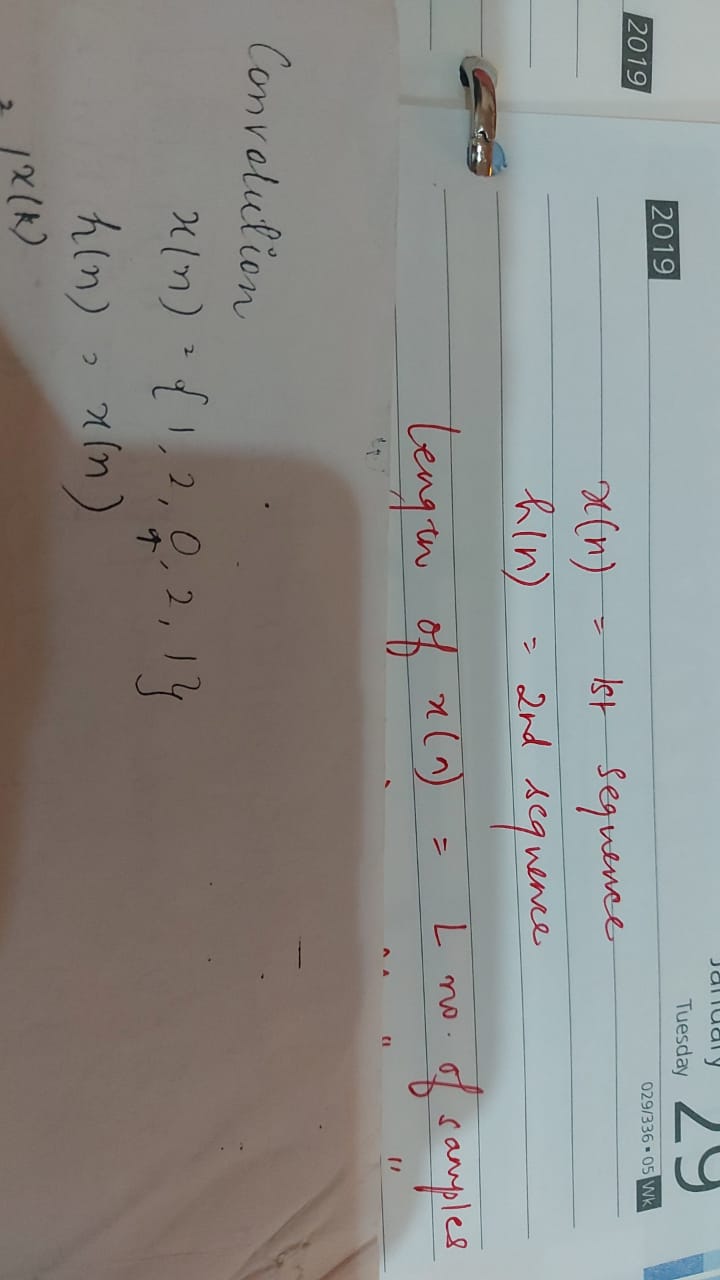 2019
2019
January
29
Tuesday
029/336 • 05 Wk
x(n) = 1st sequence
h(n) = 2nd sequence
Length of x(n) = L no. of samples
" "
Convolution
x(n) = { 1, 2, 0, 2, 1 }
↑
h(n) = x(n)
x(k)